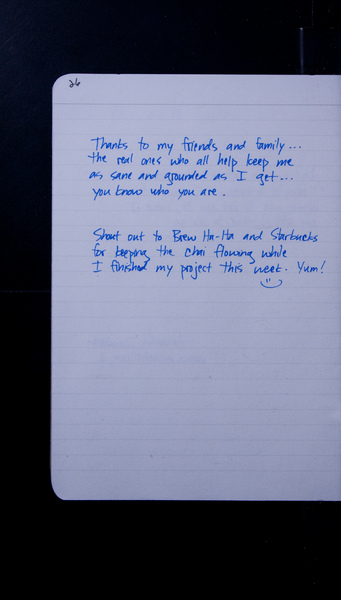 26
Thanks to my friends and family...
the real ones who all help keep me
as sane and grounded as I get...
you know who you are.
Shout out to Brew Ha-Ha and Starbucks
for keeping the chai flowing while
I finished my project this week. Yum!